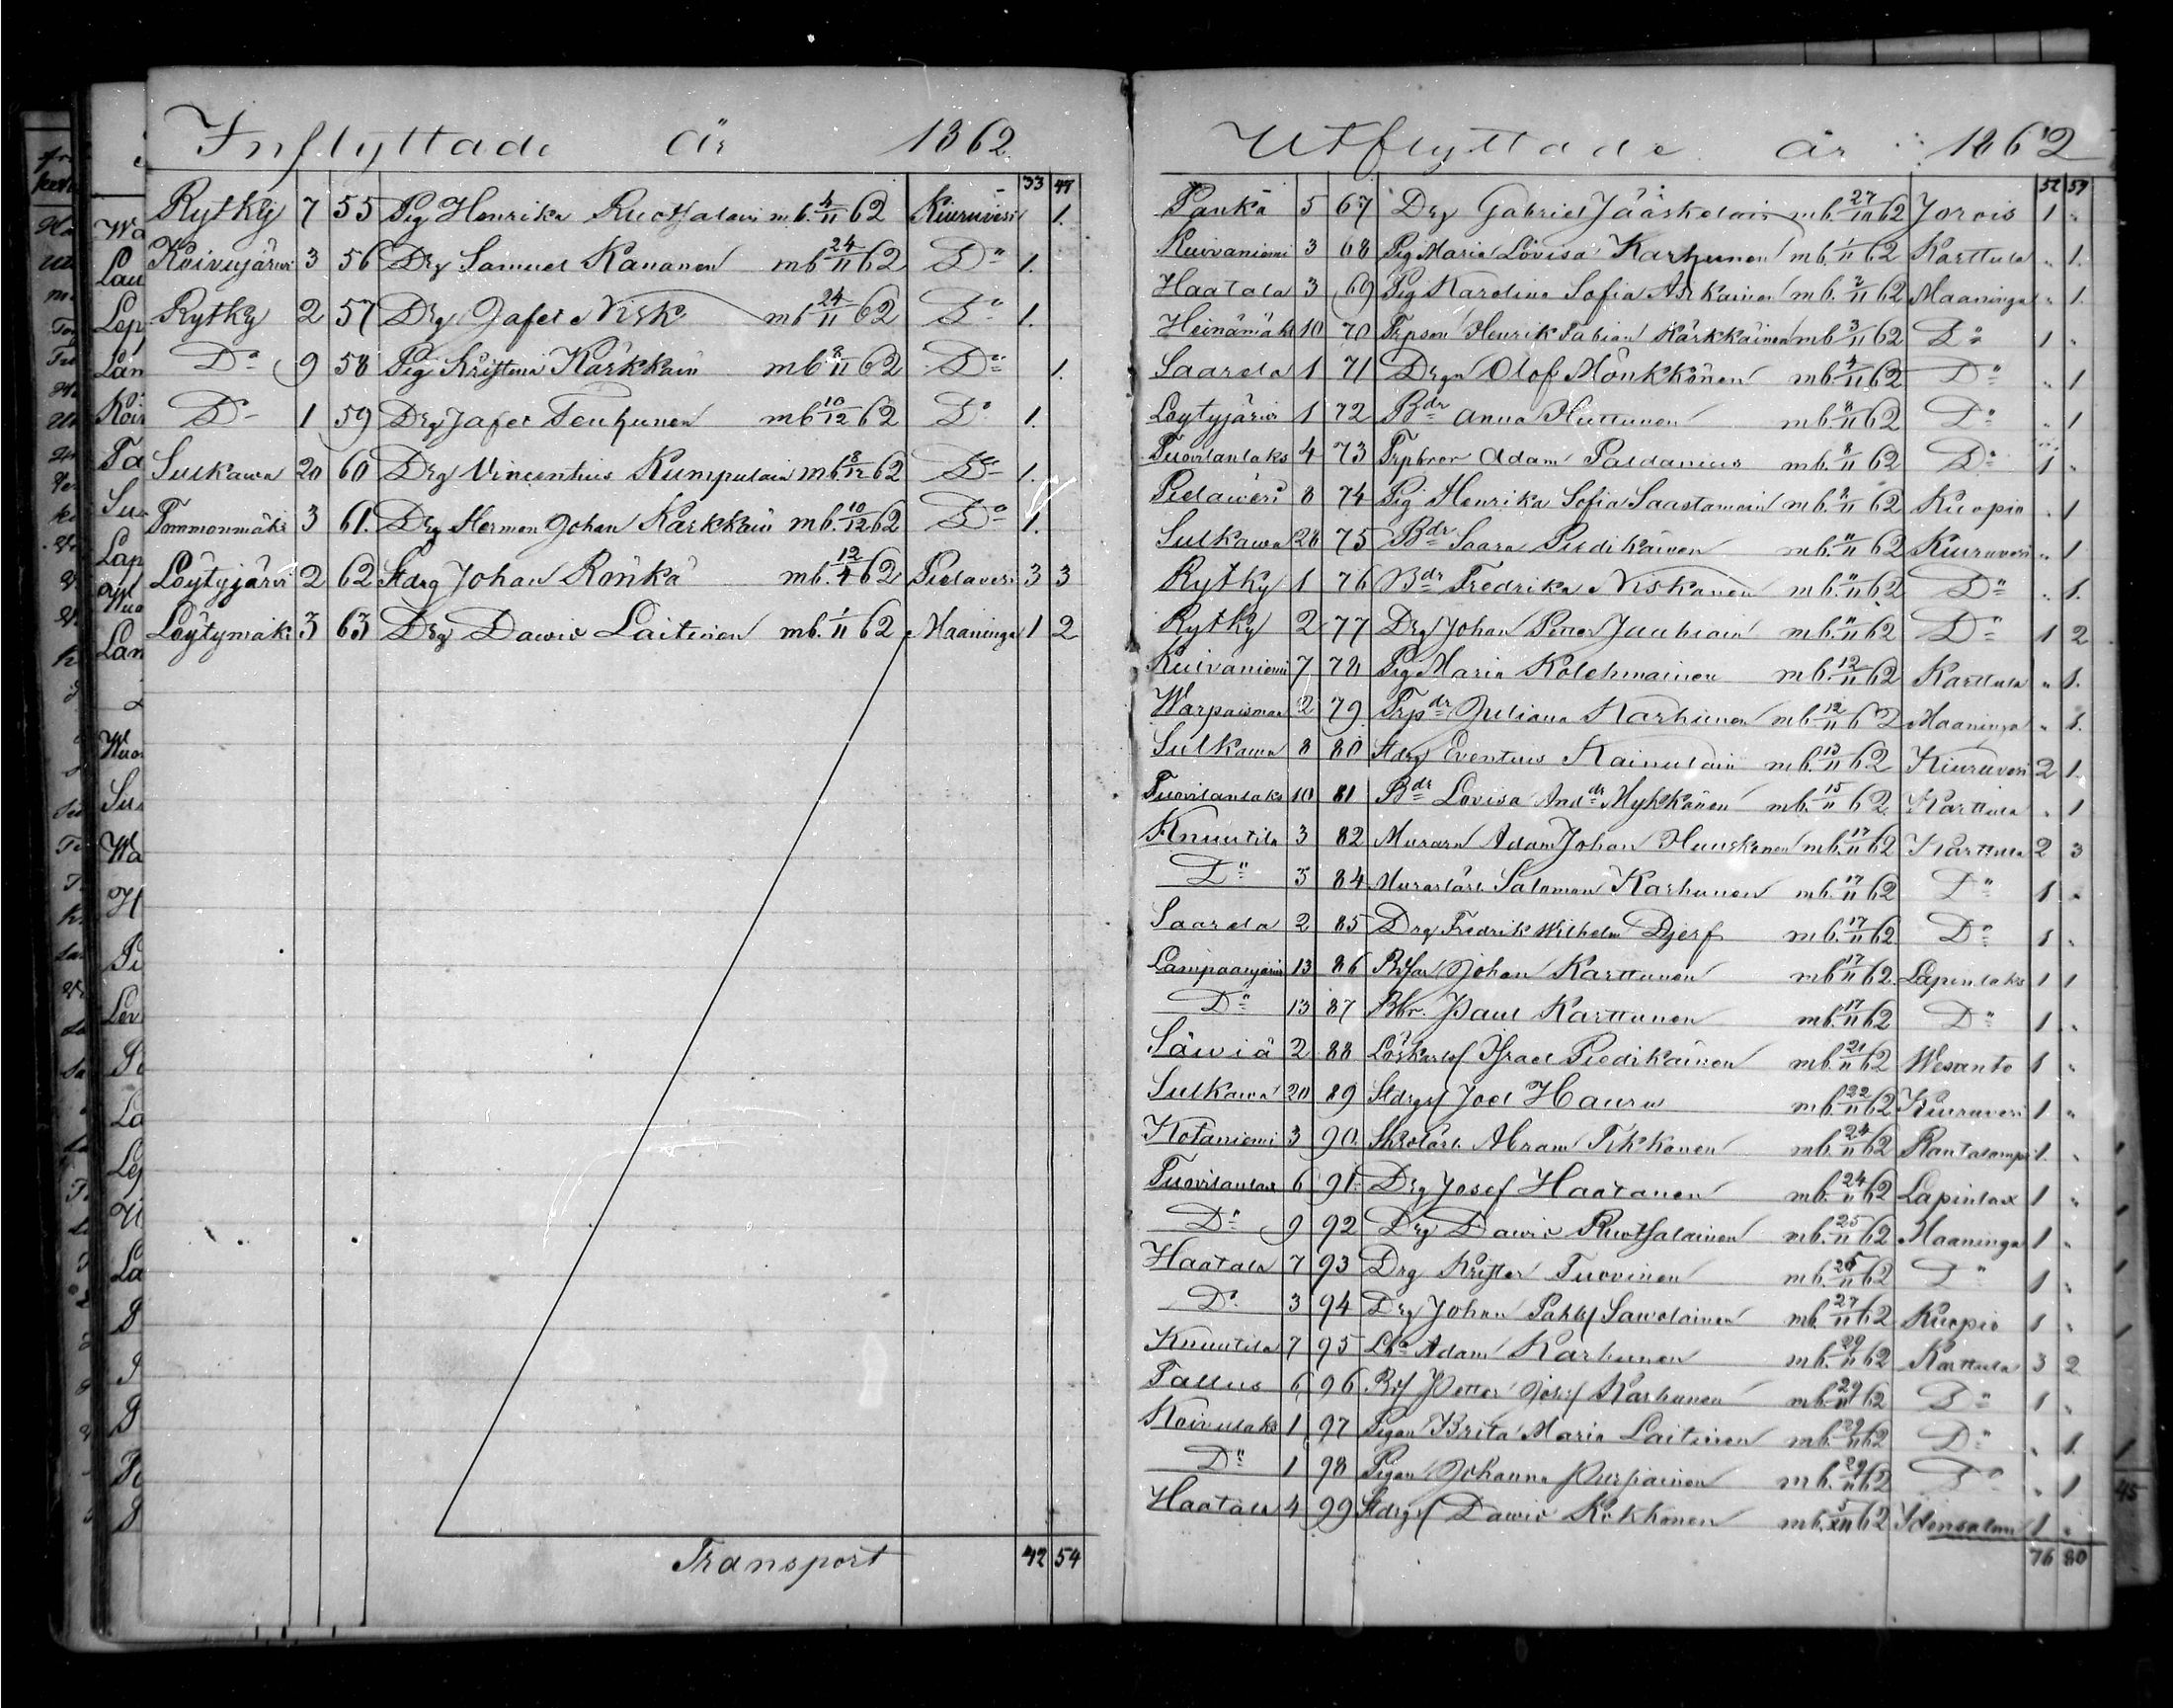 Inflyttade År 1862
33 47
Rytky 7 55 Pig Henrika Ruotsalain mb. 4/11 62 Kiuruvesi 1.
Koivujärvi 3 56 Drg Samuel Kananen mb 24/11 62 D:o 1.
Rytky 2 57 Drg Jafet Nisk mb 24/11 62 D:o 1.
D:o 9 58 Pig Kristina Kärkkäin mb 8/11 62 D:o 1.
D:o 1 59 Drg Jafet Tenhunen mb 10/12 62 D:o 1.
Sulkawa 20 60 Drg Vincentius Kumpulain mb 8/12 62 D:o 1.
Tommonmäki 3 61. Drg Herman Johan Kärkkäin mb. 10/12 62 D:o 1.
Löytyjärvi 2 62 Stdrg Johan Rönkä mb. 12/4 62 Pielavesi 3 3
Löytymäki 3 63 Drg Dawid Laitinen mb. 1/11 62 Maaninga 1 2
Transport 42 54
Utflyttade år 1862
52 59
Panka 5 67 Drg Gabriel Jääskelain mb. 27/10 62 Jorois 1 "
Kuivaniemi 3 68 Pig Maria Lovisa Karhunen mb. 1/11 62 Karttula " 1.
Haatala 3 69 Pig Karolina Sofia Asikainen mb. 2/11 62 Maaninga " 1.
Heinämäki 10 70 Trpson Henrik Fabian Kärkkäinen mb 3/11 62 D:o 1 "
Saarela 1 71 Drgn Olof Mönkkönen mb. 4/11 62 D:o " 1
Löytyjärvi 1 72 Bdr Anna Huttunen mb. 8/11 62 D:o " 1
Tuovilanlaks 4 73 Trpbror Adam Paldanius mb. 8/11 62 D:o 1 "
Pielawesi 8 74 Pig Henrika Sofia Saastamoin mb. 9/11 62 Kuopio " 1
Sulkawa 28 75 Bdr Saara Piedikäinen mb. 11/11 62 Kiuruvesi " 1
Rytky 1 76 Bdr Fredrika Niskanen mb. 11/11 62 D:o " 1.
Rytky 2 77 Drg Johan Petter mb. 11/11 62 D:o 1 2
Kuivaniemi 7 78 Pig Maria Kolehmainen mb. 12/11 62 Karttula " 1.
Warpaismä 2 79 Trpdr Juliana Karhunen mb. 12/11 62 Maaninga " 1.
Sulkawa 8 80 Stdrg Eventius Kainulain mb. 13/11 62 Kiuruvesi 2 1.
Tuovilanlaks 10 81 Bdr Lovisa Anddr Mykkänen mb. 15/11 62 Karttula " 1
Knuutila 3 82 Murarn Adam Johan Huuskonen mb. 17/11 62 Karttula 2 3
D:o 3 84 Murarlärl Salomon Karhunen mb. 17/11 62 D:o 1 "
Saarela 2 85 Drg Fredrik Wilhelm Djerf mb. 17/11 62 D:o 1 "
Lampaanjärvi 13 86 Johan Karttunen mb 17/11 62 Lapinlaks 1 1
D:o 13 87 Bbr. Paul Karttunen mb. 17/11 62 D:o 1 "
Säwiä 2 88 Löskarlsf Israel Piedikäinen mb. 21/11 62 Wesanto 1 "
Sulkawa 20 89 Stdrgsf Joel Hauru mb. 22/11 62 Kiuruvesi 1 "
Kotaniemi 3 90. Skrolärl. Abram Tikkanen mb. 24/11 62 Rantasalmi 1. "
Tuovilanlax 6 91 Drg Josef Haatanen mb. 24/11 62 Lapinlax 1 "
D:o 9 92 Drg Dawid Ruotsalainen mb. 25/11 62 Maaninga 1 "
Haatala 7 93 Drg Krister Tuovinen mb. 26/11 62 D:o 1 "
D:o 3 94 Drg Johan Sawolainen mb. 27/11 62 Kuopio 1 "
Knuutila 7 95 Adam Karhunen mb. 29/11 62 Karttula 3 2
Tallus 6 96 Petter Josef Karhunen mb. 29/11 62 D:o 1 "
Koivulaks 1 97 Pigan Brita Maria Laitinen mb. 29/11 62 D:o " 1.
D:o 1 98 Pigan Johanna Purjainen mb. 29/11 62 D:o " 1
Haatala 4 99 Stdrgsf Dawid Kokkonen mb. 5/XII 62 Idensalmi 1 "
76 80